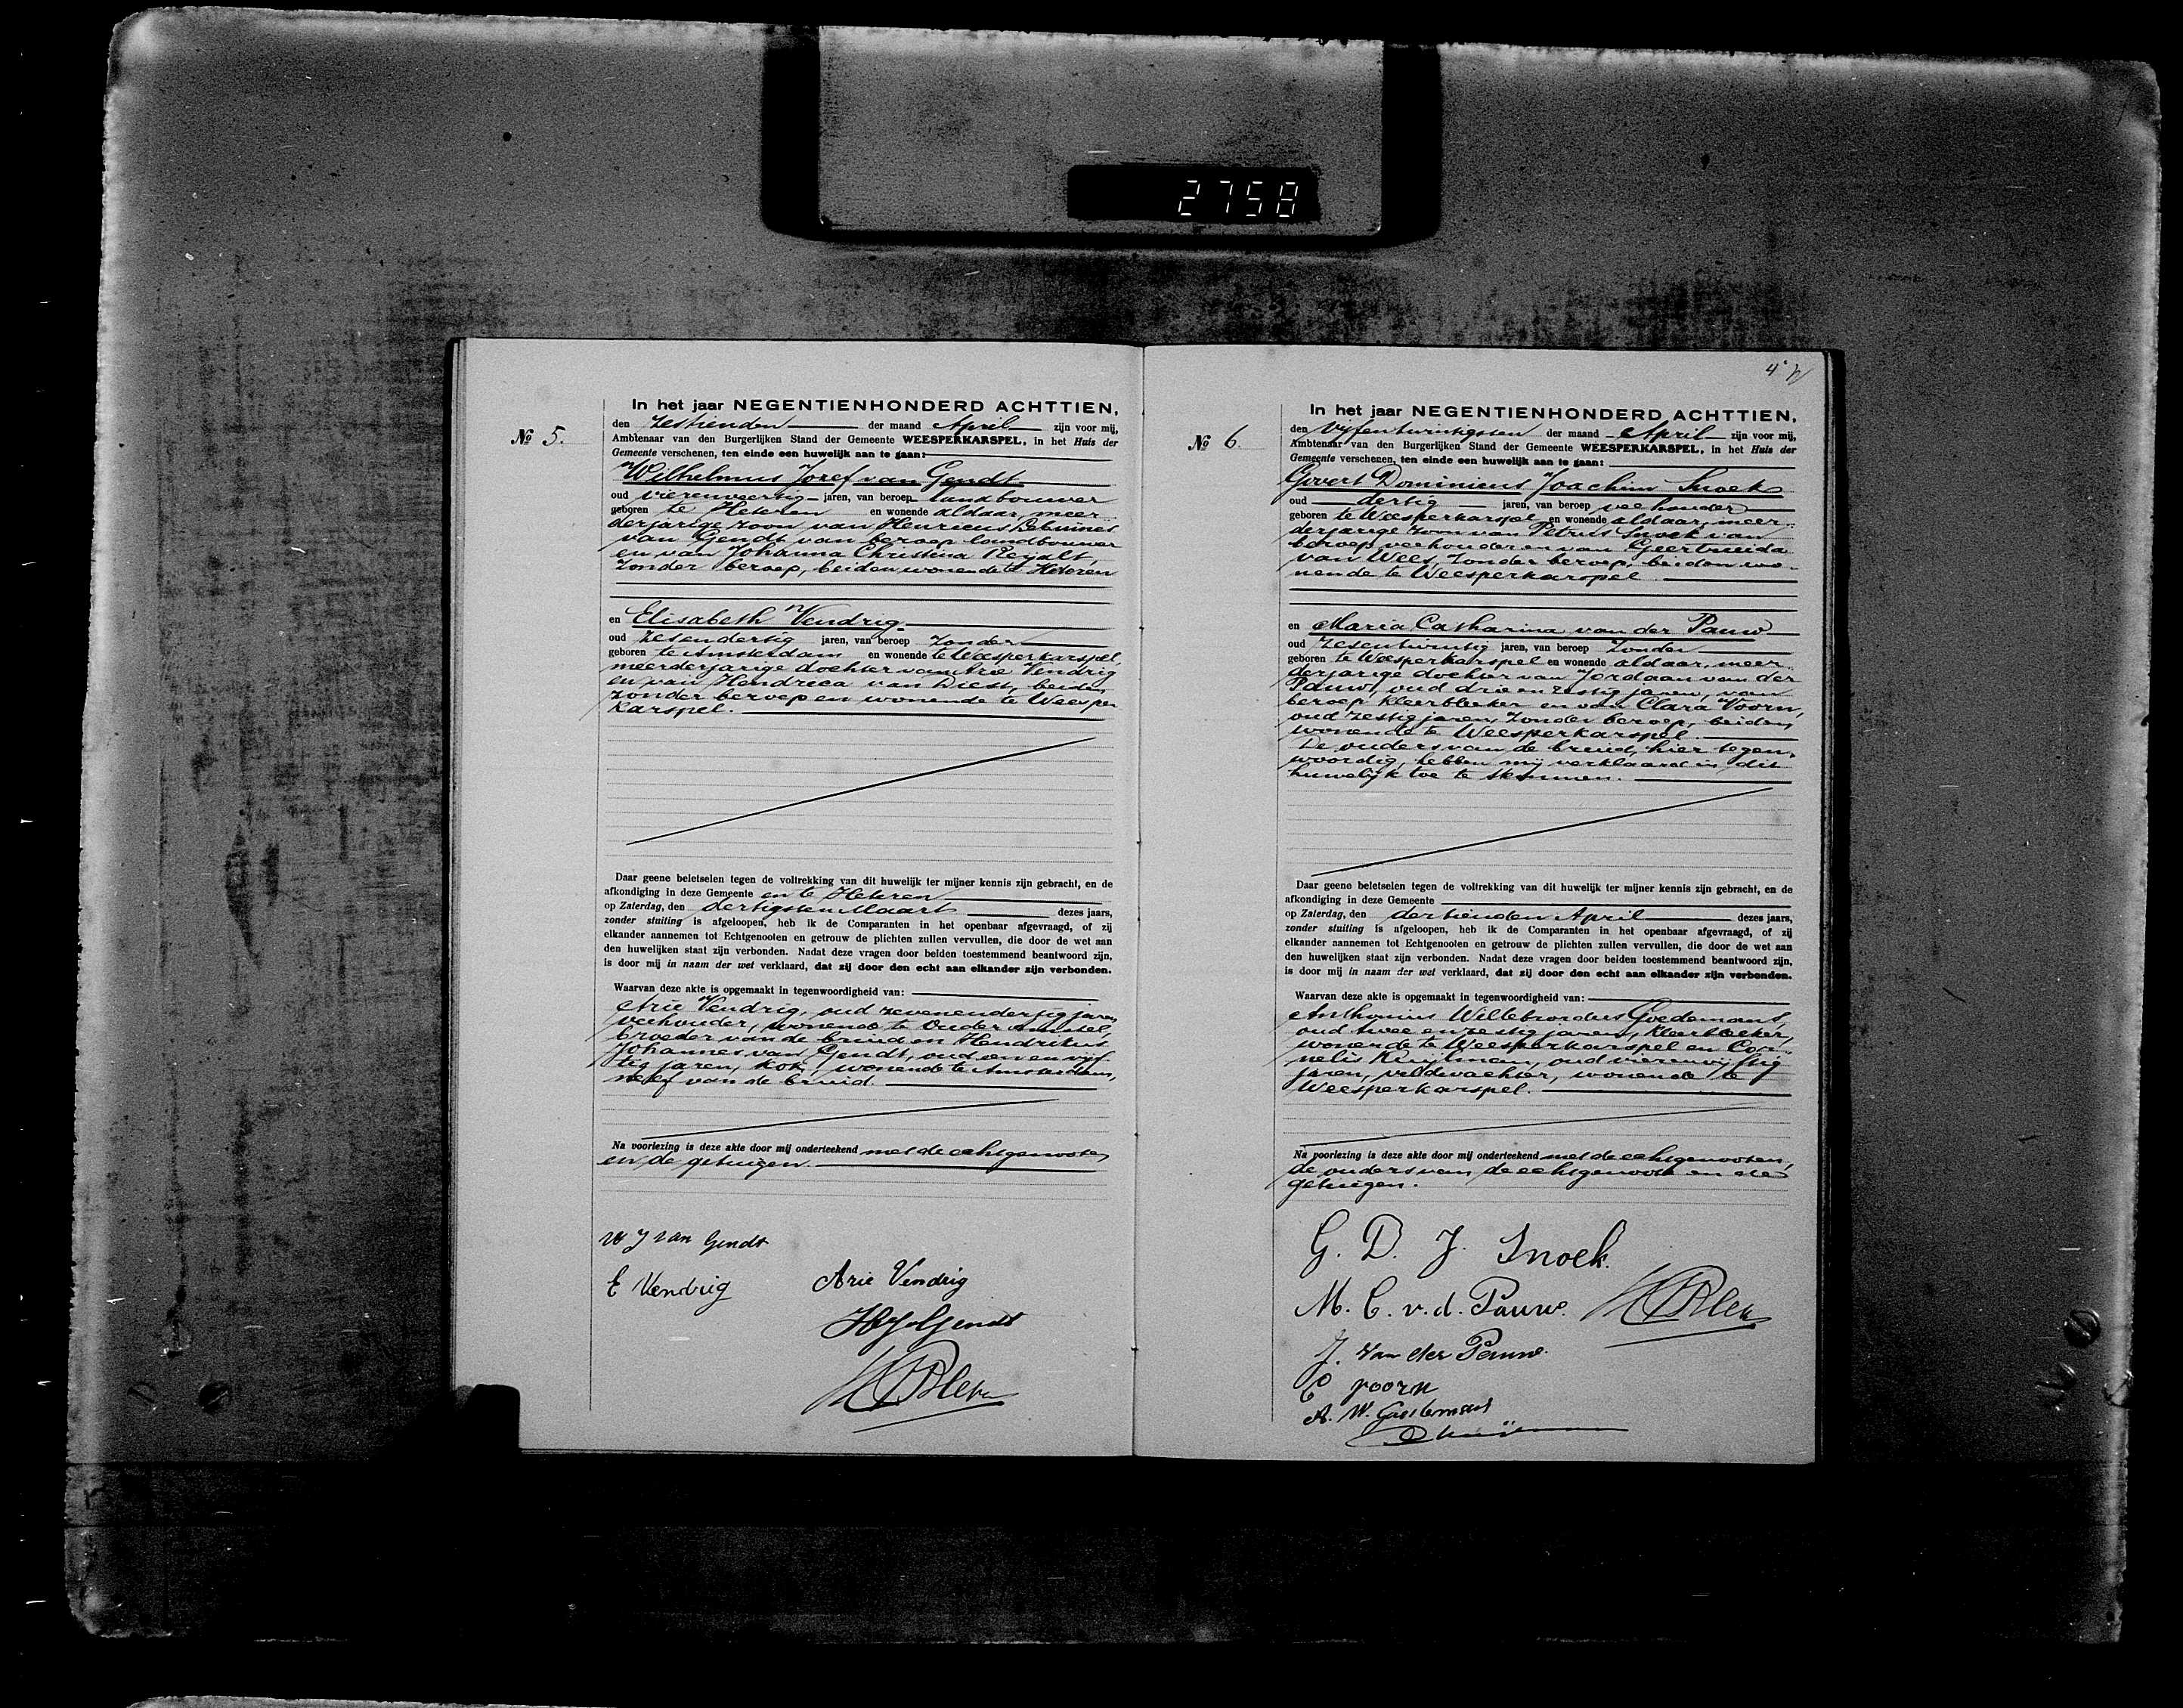 2758
In het jaar NEGENTIENHONDERD ACHTTIEN,
den zestienden der maand April zijn voor mij,
No 5. Ambtenaar van den Burgerlijken Stand der Gemeente WEESPERKARSPEL, in het Huis der
Gemeente verschenen, ten einde een huwelijk aan te gaan:
Wilhelmus Jozef van Gendt
oud vierenveertig jaren, van beroep landbouwer
geboren te Heteren en wonende aldaar, meer
derjarige zoon van Henricus
van Gendt van beroep landbouwer
en van Johanna Christina
zonder beroep, beiden wonende te Heteren
en Elisabeth Vendrig
oud zesendertig jaren, van beroep zonder
geboren te Amsterdam en wonende te Weesperkarspel,
meerderjarige dochter van Arie Vendrig
en van Hendrica van Diest, beiden
zonder beroep en wonende te Weesper
karspel.
Daar geene beletselen tegen de voltrekking van dit huwelijk ter mijner kennis zijn gebracht, en de
afkondiging in deze Gemeente en te Heteren
op Zaterdag, den dertigsten Maart dezes jaars,
zonder stuiting is afgeloopen, heb ik de Comparanten in het openbaar afgevraagd, of zij
elkander aannemen tot Echtgenooten en getrouw de plichten zullen vervullen, die door de wet aan
den huwelijken staat zijn verbonden. Nadat deze vragen door beiden toestemmend beantwoord zijn,
is door mij in naam der wet verklaard, dat zij door den echt aan elkander zijn verbonden.
Waarvan deze akte is opgemaakt in tegenwoordigheid van:
Arie Vendrig, oud zevenendertig jaren
veehouder, wonende te Ouder Amstel,
broeder van de bruid en Hendrikus
Johannes van Gendt, oud een en vijf
tig jaren, kok, wonende te Amsterdam,
neef van de bruid
Na voorlezing is deze akte door mij onderteekend met de echtgenooten
en de getuigen.
W J van Gendt
E Vendrig Arie Vendrig
HJvGendt
4
In het jaar NEGENTIENHONDERD ACHTTIEN,
den vijfentwintigsten der maand April zijn voor mij,
No 6. Ambtenaar van den Burgerlijken Stand der Gemeente WEESPERKARSPEL, in het Huis der
Gemeente verschenen, ten einde een huwelijk aan te gaan:
Govert Dominicus Joachim Snoek
oud dertig jaren, van beroep veehouder
geboren te Weesperkarspel en wonende aldaar, meer
derjarige zoon van Petrus Snoek van
beroep veehouder en van Geertruida
van Wees, zonder beroep, beiden wo-
nende te Weesperkarspel
en Maria Catharina van der Pauw
oud zesentwintig jaren, van beroep zonder
geboren te Weesperkarspel en wonende aldaar, meer
derjarige dochter van Jordaan van der
Pauw, oud drie en zestig jaren, van
beroep kleerbleeker en van Clara Voorn,
oud zestig jaren, zonder beroep, beiden
wonende te Weesperkarspel.
De ouders van de bruid, hier tegen-
woordig, hebben mij verklaard in dit
huwelijk toe te stemmen.
Daar geene beletselen tegen de voltrekking van dit huwelijk ter mijner kennis zijn gebracht, en de
afkondiging in deze Gemeente
op Zaterdag, den dertienden April dezes jaars,
zonder stuiting is afgeloopen, heb ik de Comparanten in het openbaar afgevraagd, of zij
elkander aannemen tot Echtgenooten en getrouw de plichten zullen vervullen, die door de wet aan
den huwelijken staat zijn verbonden. Nadat deze vragen door beiden toestemmend beantwoord zijn,
is door mij in naam der wet verklaard, dat zij door den echt aan elkander zijn verbonden.
Waarvan deze akte is opgemaakt in tegenwoordigheid van:
Anthonius Willebrordus Goedemans,
oud twee en zestig jaren, kleerbleeker,
wonende te Weesperkarspel en Cor-
nelis Kuijlman, oud vierenvijftig
jaren, veldwachter, wonende te
Weesperkarspel.
Na voorlezing is deze akte door mij onderteekend met de echtgenooten,
de ouders van de echtgenoote en de
getuigen.
G. D. J. Snoek.
M. C. v. d. Pauw.
J. van der Pauw.
C voorn
A. W. Goedemans